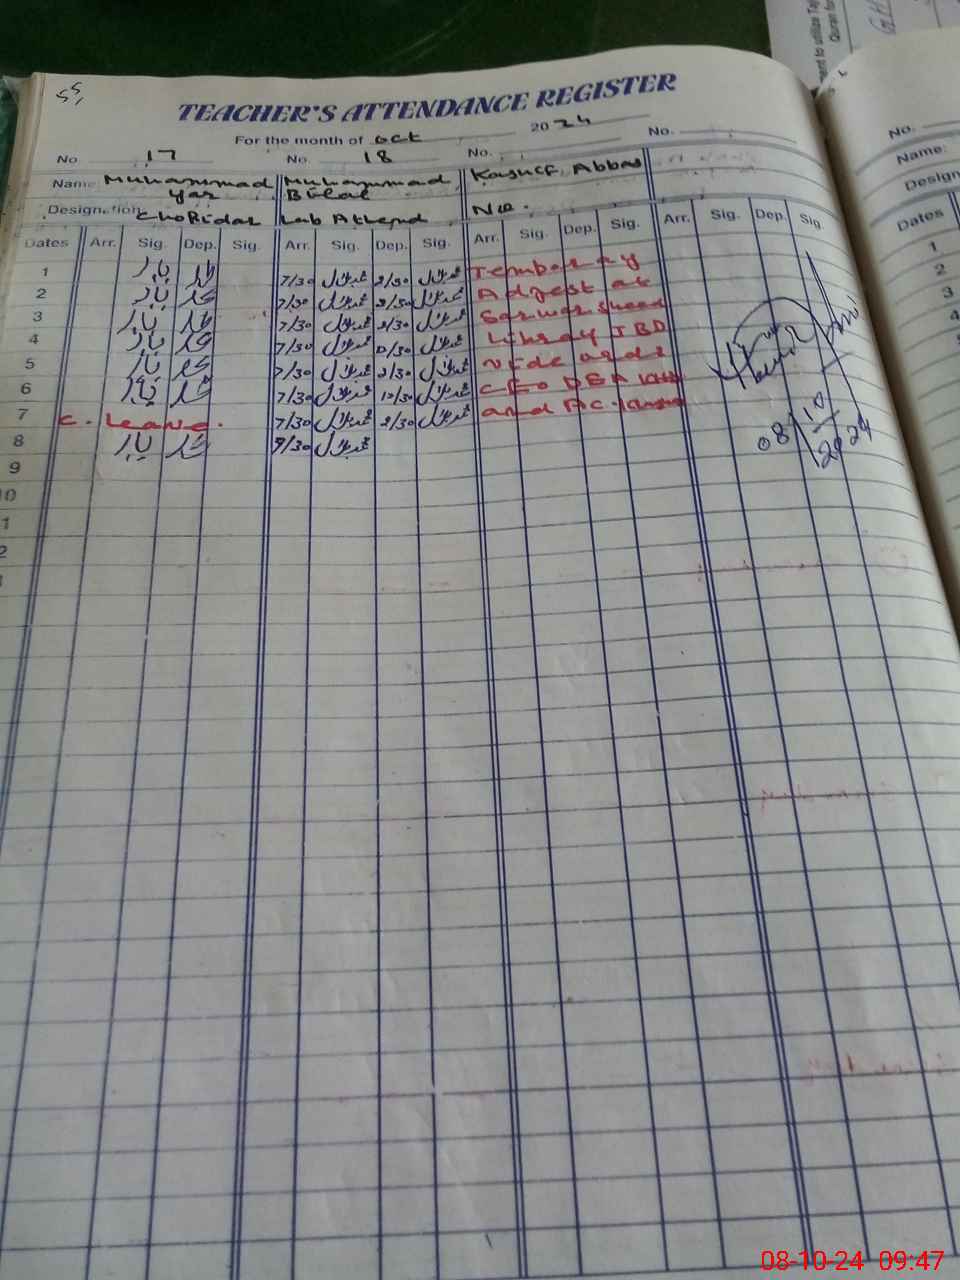 55,
TEACHER'S ATTENDANCE REGISTER
For the month of Oct 2024
No. 17 No. 18 No. No.
Name Muhammad Yar Muhammad Bilal Kashif Abbas
Designction ChoKidar Lab Attend N/Q.
Dates Arr. Sig. Dep. Sig. Arr. Sig. Dep. Sig. Arr. Sig. Dep. Sig. Arr. Sig. Dep. Sig.
1 یار محمد 7/30 محمد بلال 2/30 محمد بلال Temborary
2 یار محمد 7/30 محمد بلال 2/30 محمد بلال Adjest at
3 یار محمد 7/30 محمد بلال 2/30 محمد بلال Sarwar Sheed
4 یار محمد 7/30 محمد بلال محمد بلال Libray JBD
5 یار محمد 7/30 محمد بلال 2/30 محمد بلال vide
6 یار محمد 7/30 محمد بلال 12/30 محمد بلال CEO DEA
7 C. Leave. 7/30 محمد بلال 2/30 محمد بلال and AC
8 یار محمد 7/30 محمد بلال
08/10/2024
9
10
1
2
No.
Name:
Design
Dates
1
2
3
4
08-10-24 09:47